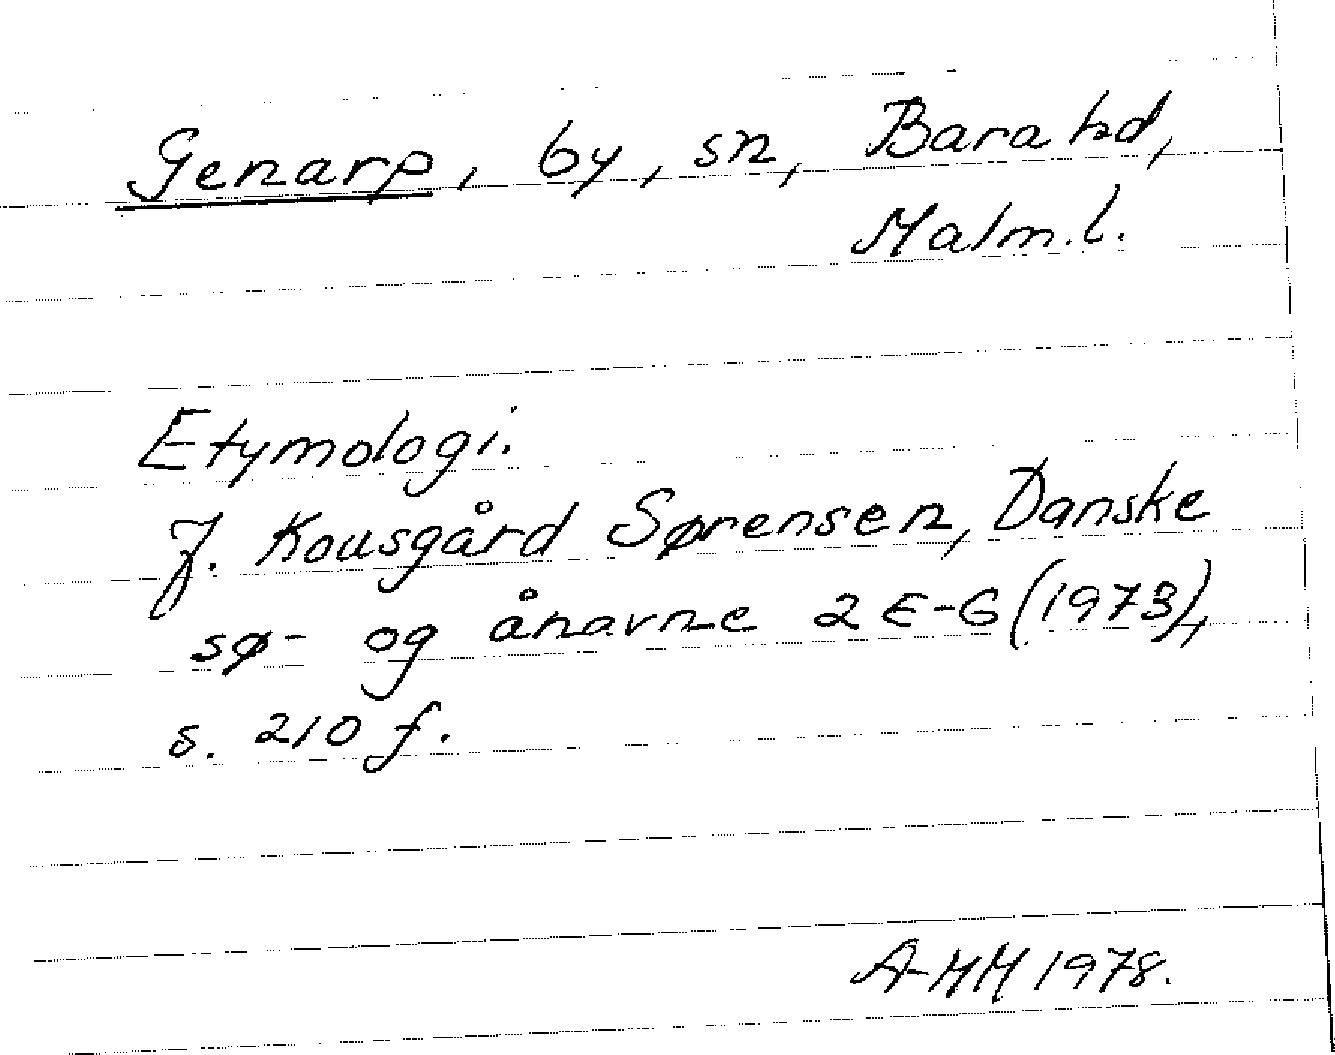 Genarp, by, sn, Bara hd,
Malm.l.
Etymologi.
J. Kousgård Sørensen, Danske
sø- og ånavne 2 E-G (1973),
s. 210 f.
A-MM 1978.